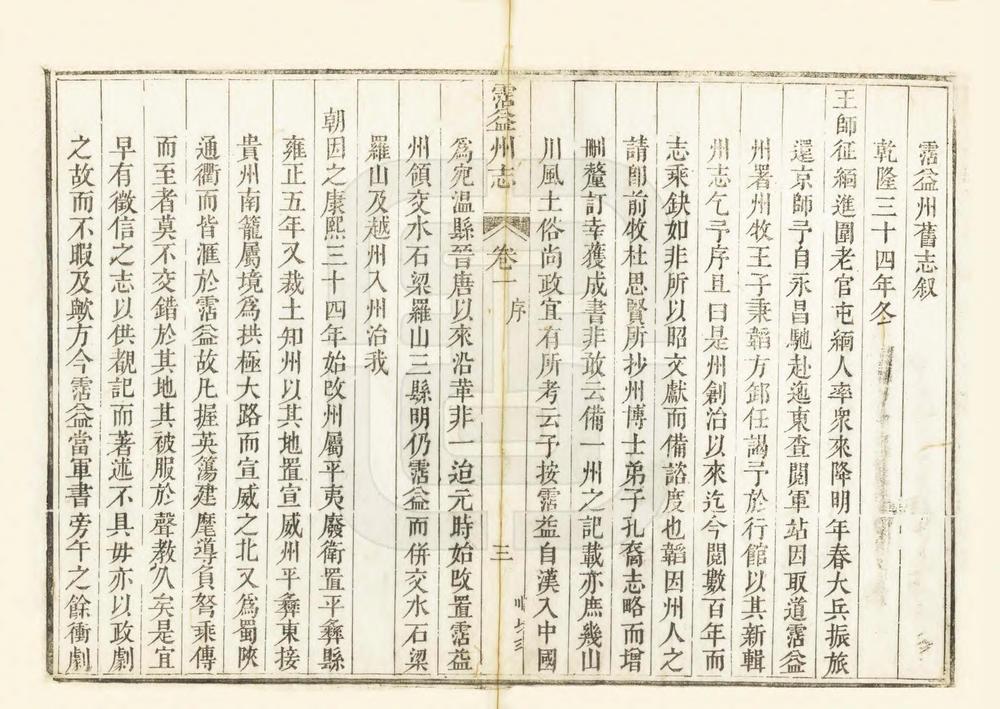 霑益州舊志叙
乾隆三十四年冬
王師征緬進圍老官屯緬人率衆來降明年春大兵振旅
還京師予自永昌馳赴迤東查閲軍站因取道霑益
州署州牧王子秉韜方卸任謁予於行館以其新輯
州志乞予序且曰是州創治以來迄今閲數百年而
志乘缺如非所以昭文獻而備諮度也韜因州人之
請卽前牧杜思賢所抄州博士弟子孔裔志略而增
刪釐訂幸獲成書非敢云備一州之記載亦庶幾山
川風土俗尚政宜有所考云予按霑益自漢入中國
霑益州志
卷一
序
三
爲宛温縣晉唐以來沿革非一迨元時始改置霑益
州領交水石梁羅山三縣明仍霑益而併交水石梁
羅山及越州入州治我
朝因之康熙三十四年始改州屬平夷廢衛置平彝縣
雍正五年又裁土知州以其地置宣威州平彝東接
貴州南籠屬境爲拱極大路而宣威之北又爲蜀陜
通衢而皆滙於霑益故凡握英簜建麾導負弩乘傳
而至者莫不交錯於其地其被服於聲教久矣是宜
早有徵信之志以供觀記而著述不具毋亦以政劇
之故而不暇及歟方今霑益當軍書旁午之餘衝劇